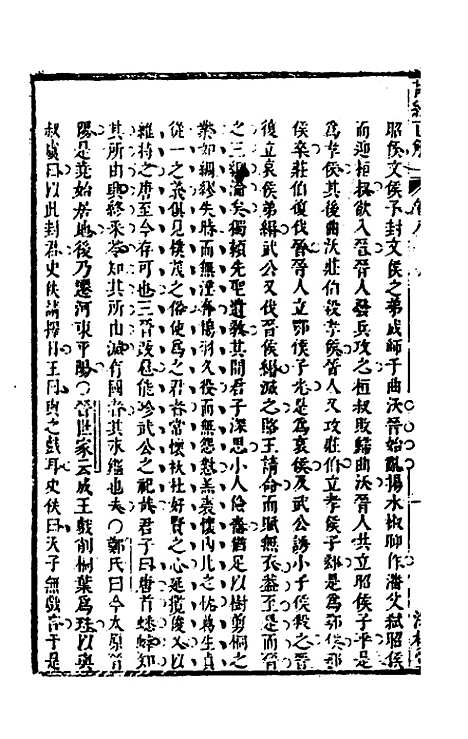 昭侯文侯子封文侯之弟成師于曲沃晉始亂揚水椒聊作潘父弑昭侯
而迎桓叔欲入晉晉人發兵攻之桓叔敗歸曲沃晉人共立昭侯子平是
為孝侯其後曲沃莊伯殺孝侯晉人又攻莊伯立孝侯子郄是為鄂侯鄂
侯卒莊伯復伐晉晉人立鄂侯子光是為哀侯及武公誘小子侯殺之晉
復立哀侯弟緡武公又伐晉侯緡滅之賂王請命而賦無衣蓋至是而晉
之三綱淪矣獨賴先聖遺教其間君子深思小人儉嗇猶足以樹剪桐之
業如綢繆失時而無淫奔鴇羽久役而無怨懟羔裘懷內比之怙蒍生貞
從一之義俱見樸茂之俗使為之君者常懷杕杜好賢之心延攬俊乂以
維持之唐至今存可也三晉改惡能殄武公之祀哉君子曰唐首蟋蟀知
其所由興終采苓知其所由滅有國者其永鑑也夫○鄭氏曰今太原晉
陽是堯始居地後乃遷河東平陽○晉世家云成王戲削桐葉為珪以與
叔虞曰以此封若史佚請擇日王曰與之戲耳史佚曰天子無戲言于是